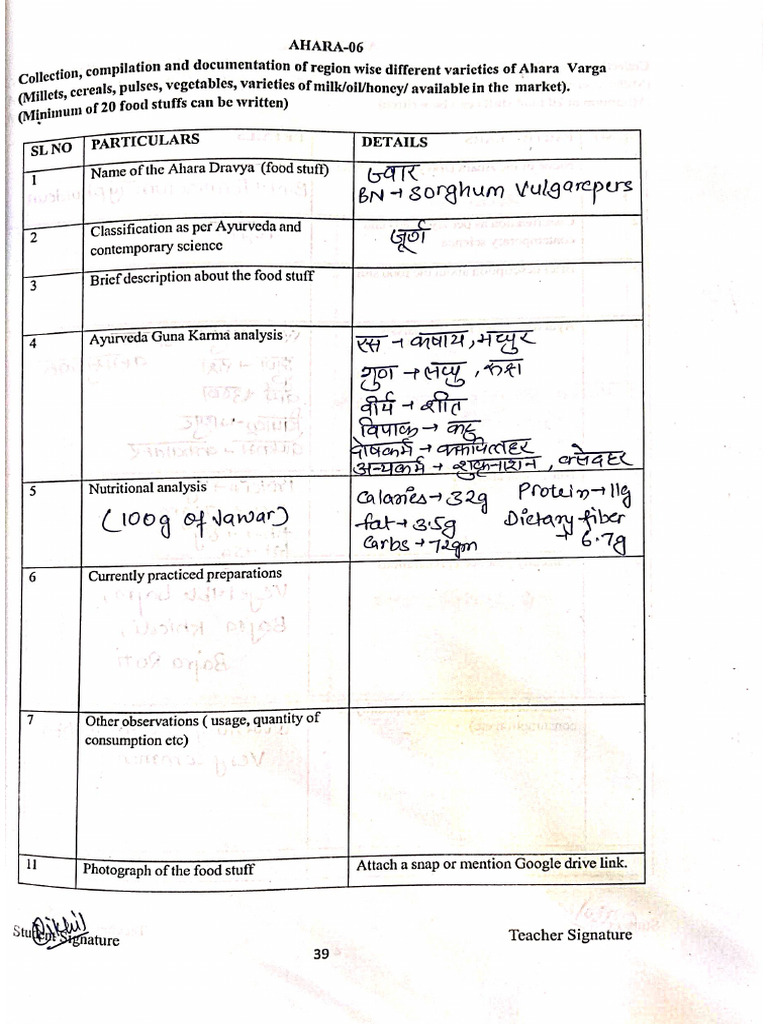 AHARA-06
Collection, compilation and documentation of region wise different varieties of Ahara Varga
(Millets, cereals, pulses, vegetables, varieties of milk/oil/honey/ available in the market).
(Minimum of 20 food stuffs can be written)
SL NO PARTICULARS DETAILS
1 Name of the Ahara Dravya (food stuff) ज्वार
BN → Sorghum Vulgarepers
2 Classification as per Ayurveda and
contemporary science
जूर्ण
3 Brief description about the food stuff
4 Ayurveda Guna Karma analysis रस → कषाय, मधुर
गुण → लघु, रुक्ष
वीर्य → शीत
विपाक → कटु
दोषकर्म → कफपित्तहर
अन्यकर्म → शुक्रनाशन, क्लेदहर
5 Nutritional analysis
(100g of Jawar)
Calaries → 32g Protein → 11g
fat → 3.5g Dietary fiber
Carbs → 72gm → 6.7g
6 Currently practiced preparations
7 Other observations ( usage, quantity of
consumption etc)
11 Photograph of the food stuff Attach a snap or mention Google drive link.
Student Signature
Teacher Signature
39